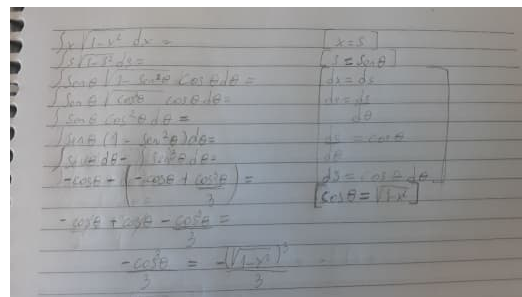 ∫x√1-x² dx =
∫s√1-s² ds =
∫senθ √1-sen²θ cosθ dθ =
∫senθ √cos²θ cosθ dθ =
∫senθ cos²θ dθ =
∫senθ (1-sen²θ) dθ =
∫senθ dθ - ∫sen³θ dθ =
-cosθ - (-cosθ + cos³θ/3) =
-cosθ + cosθ - cos³θ/3 =
-cos³θ/3 = -(√1-x²)³/3
x = s
s = senθ
dx = ds
ds/dθ = cosθ
ds = cosθ dθ
cosθ = √1-x²